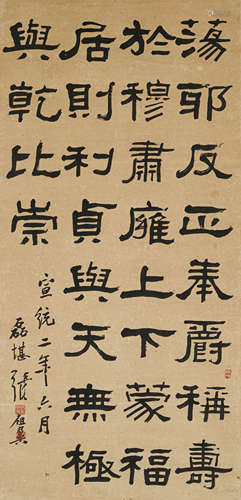 蕩邪反正奉爵稱壽
於穆肅雍上下蒙福
居則利貞與天無極
與乾比崇
宣統二年六月
磊堪張祖翼